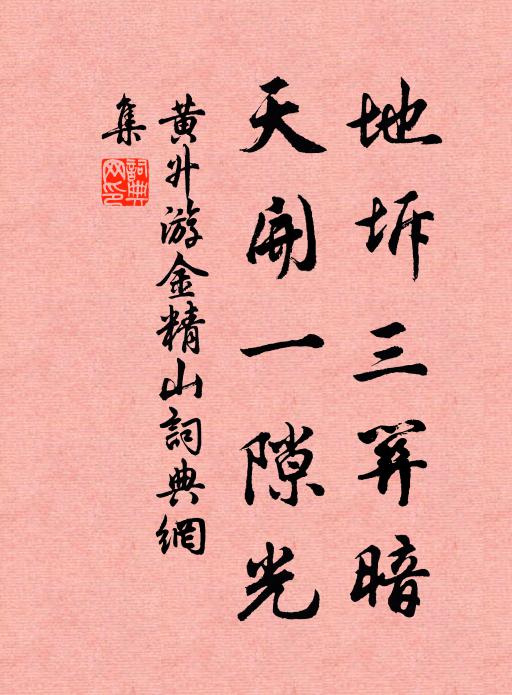 地坼三暗
天開一隙光
黄升游金精山詞典網
集
詞典網印